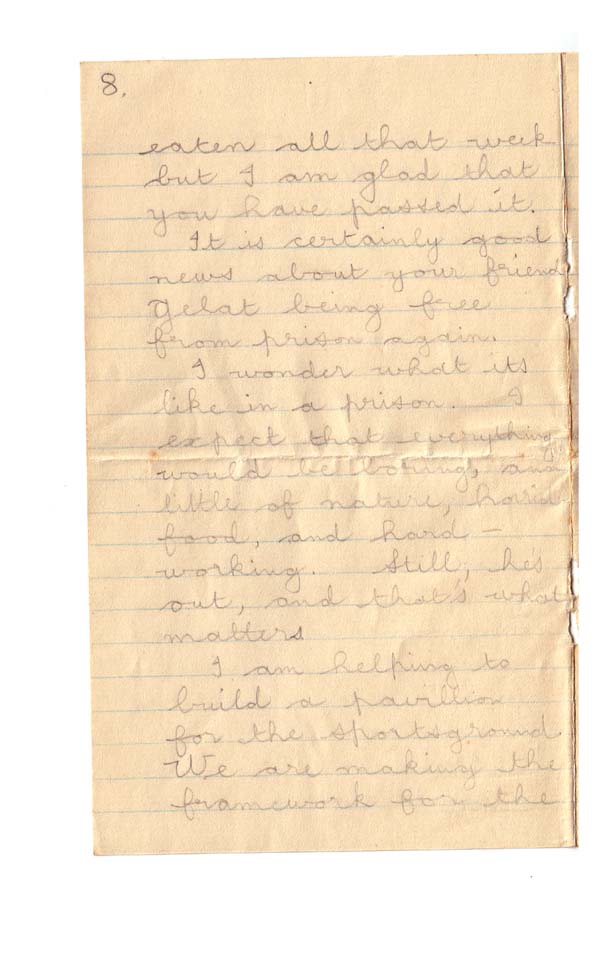 8.
eaten all that week
but I am glad that
you have passed it.
It is certainly good
news about your friend
Gelat being free
from prison again.
I wonder what its
like in a prison. I
expect that everything
would be boring, and
little of nature, horrid
food, and hard -
working. Still, he's
out, and that's what
matters
I am helping to
build a pavillion
for the sportsground.
We are making the
framework for the